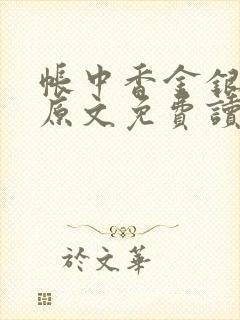 帳中香金銀
原文免費讀
於文華